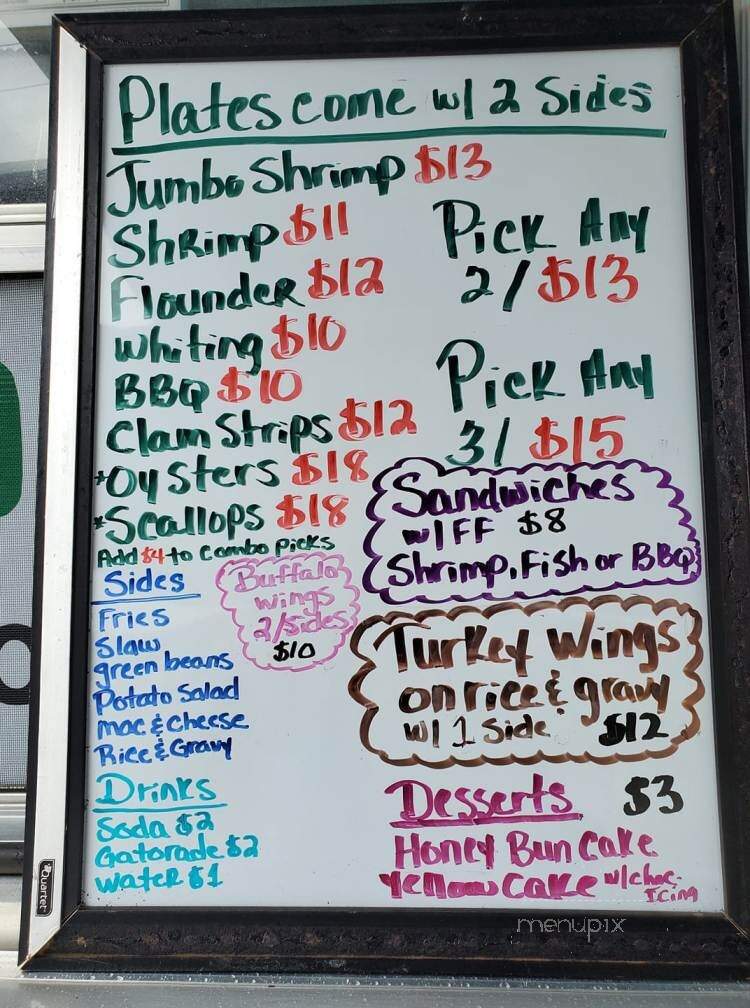 Plates come w/ 2 Sides
Jumbo Shrimp $13
Shrimp $11
Flounder $12
Whiting $10
BBQ $10
Clam Strips $12
*Oysters $18
*Scallops $18
Add $4 to combo picks
Pick Any
2/ $13
Pick Any
3/ $15
Sandwiches
w/FF $8
Shrimp, Fish or BBQ
Sides
Fries
Slaw
green beans
Potato Salad
mac & cheese
Rice & Gravy
Buffalo
wings
2/sides
$10
Turkey Wings
on rice & gravy
w/ 1 Side $12
Drinks
Soda $2
Gatorade $2
Water $1
Desserts $3
Honey Bun Cake
Yellow Cake w/choc.
Icing
Quartet
menupix